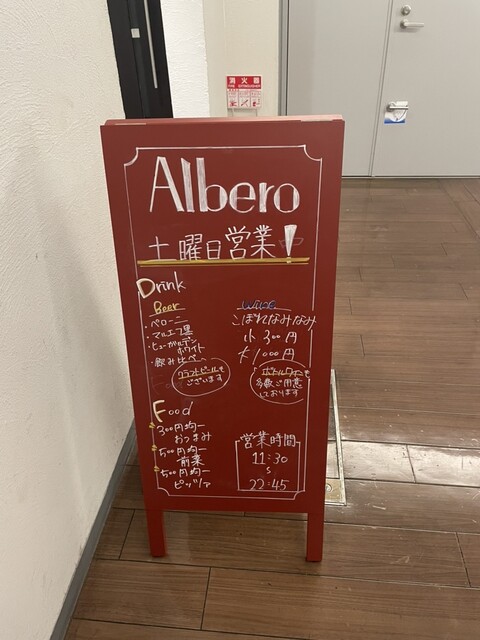 消火器
FIRE EXTINGUISHER
Albero
土曜日営業!
Drink
Beer
・ペローニ
・マルエフ黒
・ヒューガルデン
ホワイト
・飲み比べ
クラフトビールも
ございます
Wine
こぼれなみなみ
小 300円
大 1,000円
ボトルワインも
多数ご用意
しております
Food
300円均一
おつまみ
500円均一
前菜
500円均一
ピッツァ
営業時間
11:30
〜
22:45